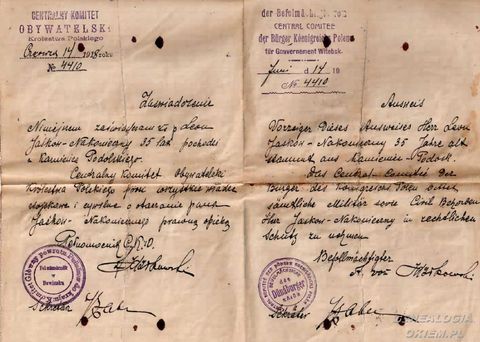 CENTRALNY KOMITET
OBYWATELSKI
Królestwa Polskiego
Czerwca 14 1918 roku
№ 4410
Zaświadczenie
Niniejszem zaświadczam że p. Leon
Jaśkow-Nakonieczny 35 lat pochodzi
z Kamieńca Podolskiego.
Centralny Komitet Obywatelski
Królestwa Polskiego prosi wszystkie władze
wojskowe i cywilne o otoczenie pana
Jaśkow-Nakoniecznego prawną opieką
Pełnomocnik C.K.O.
Sekretarz
Pełnomocnik
w Dzwinsku
CENTRAL COMITÉ
der Bürger Königreichs Polens
für Gouvernement Witebsk.
Juni d 14 19
№ 4410
Ausweis
Vorzeiger Dieses Ausweises Herr Leon
Jaśkow-Nakonieczny 35 Jahre alt
stammt aus Kamieniec-Podolsk.
Das Central-Comitée der
Bürger des Königreichs Polen
sämtliche Militär sowie Civil Behörden
Herr Jaśkow-Nakonieczny in rechtlichen
Schutz zu nehmen
Bevollmächtigter
A. von
Sekretär
des
Dünaburger
GENEALOGIA
OKIEM.PL